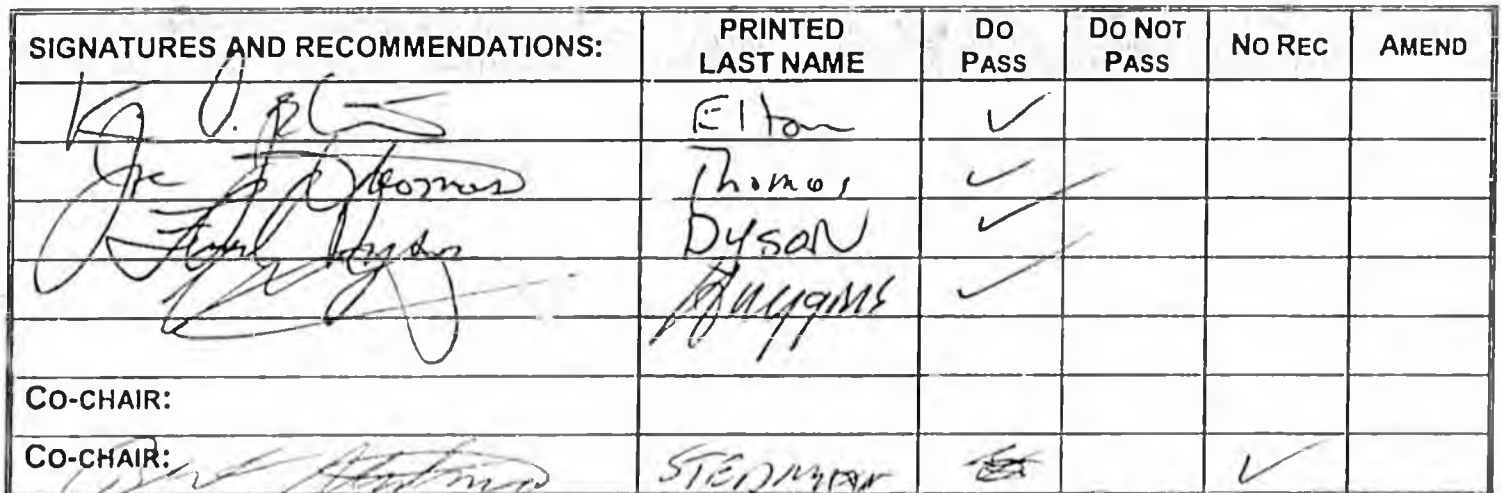 SIGNATURES AND RECOMMENDATIONS: PRINTED LAST NAME DO PASS DO NOT PASS NO REC AMEND
Elton ✓
Thomas Thomas ✓
Dyson ✓
Huggins ✓
CO-CHAIR:
CO-CHAIR: STEDMAN ✓